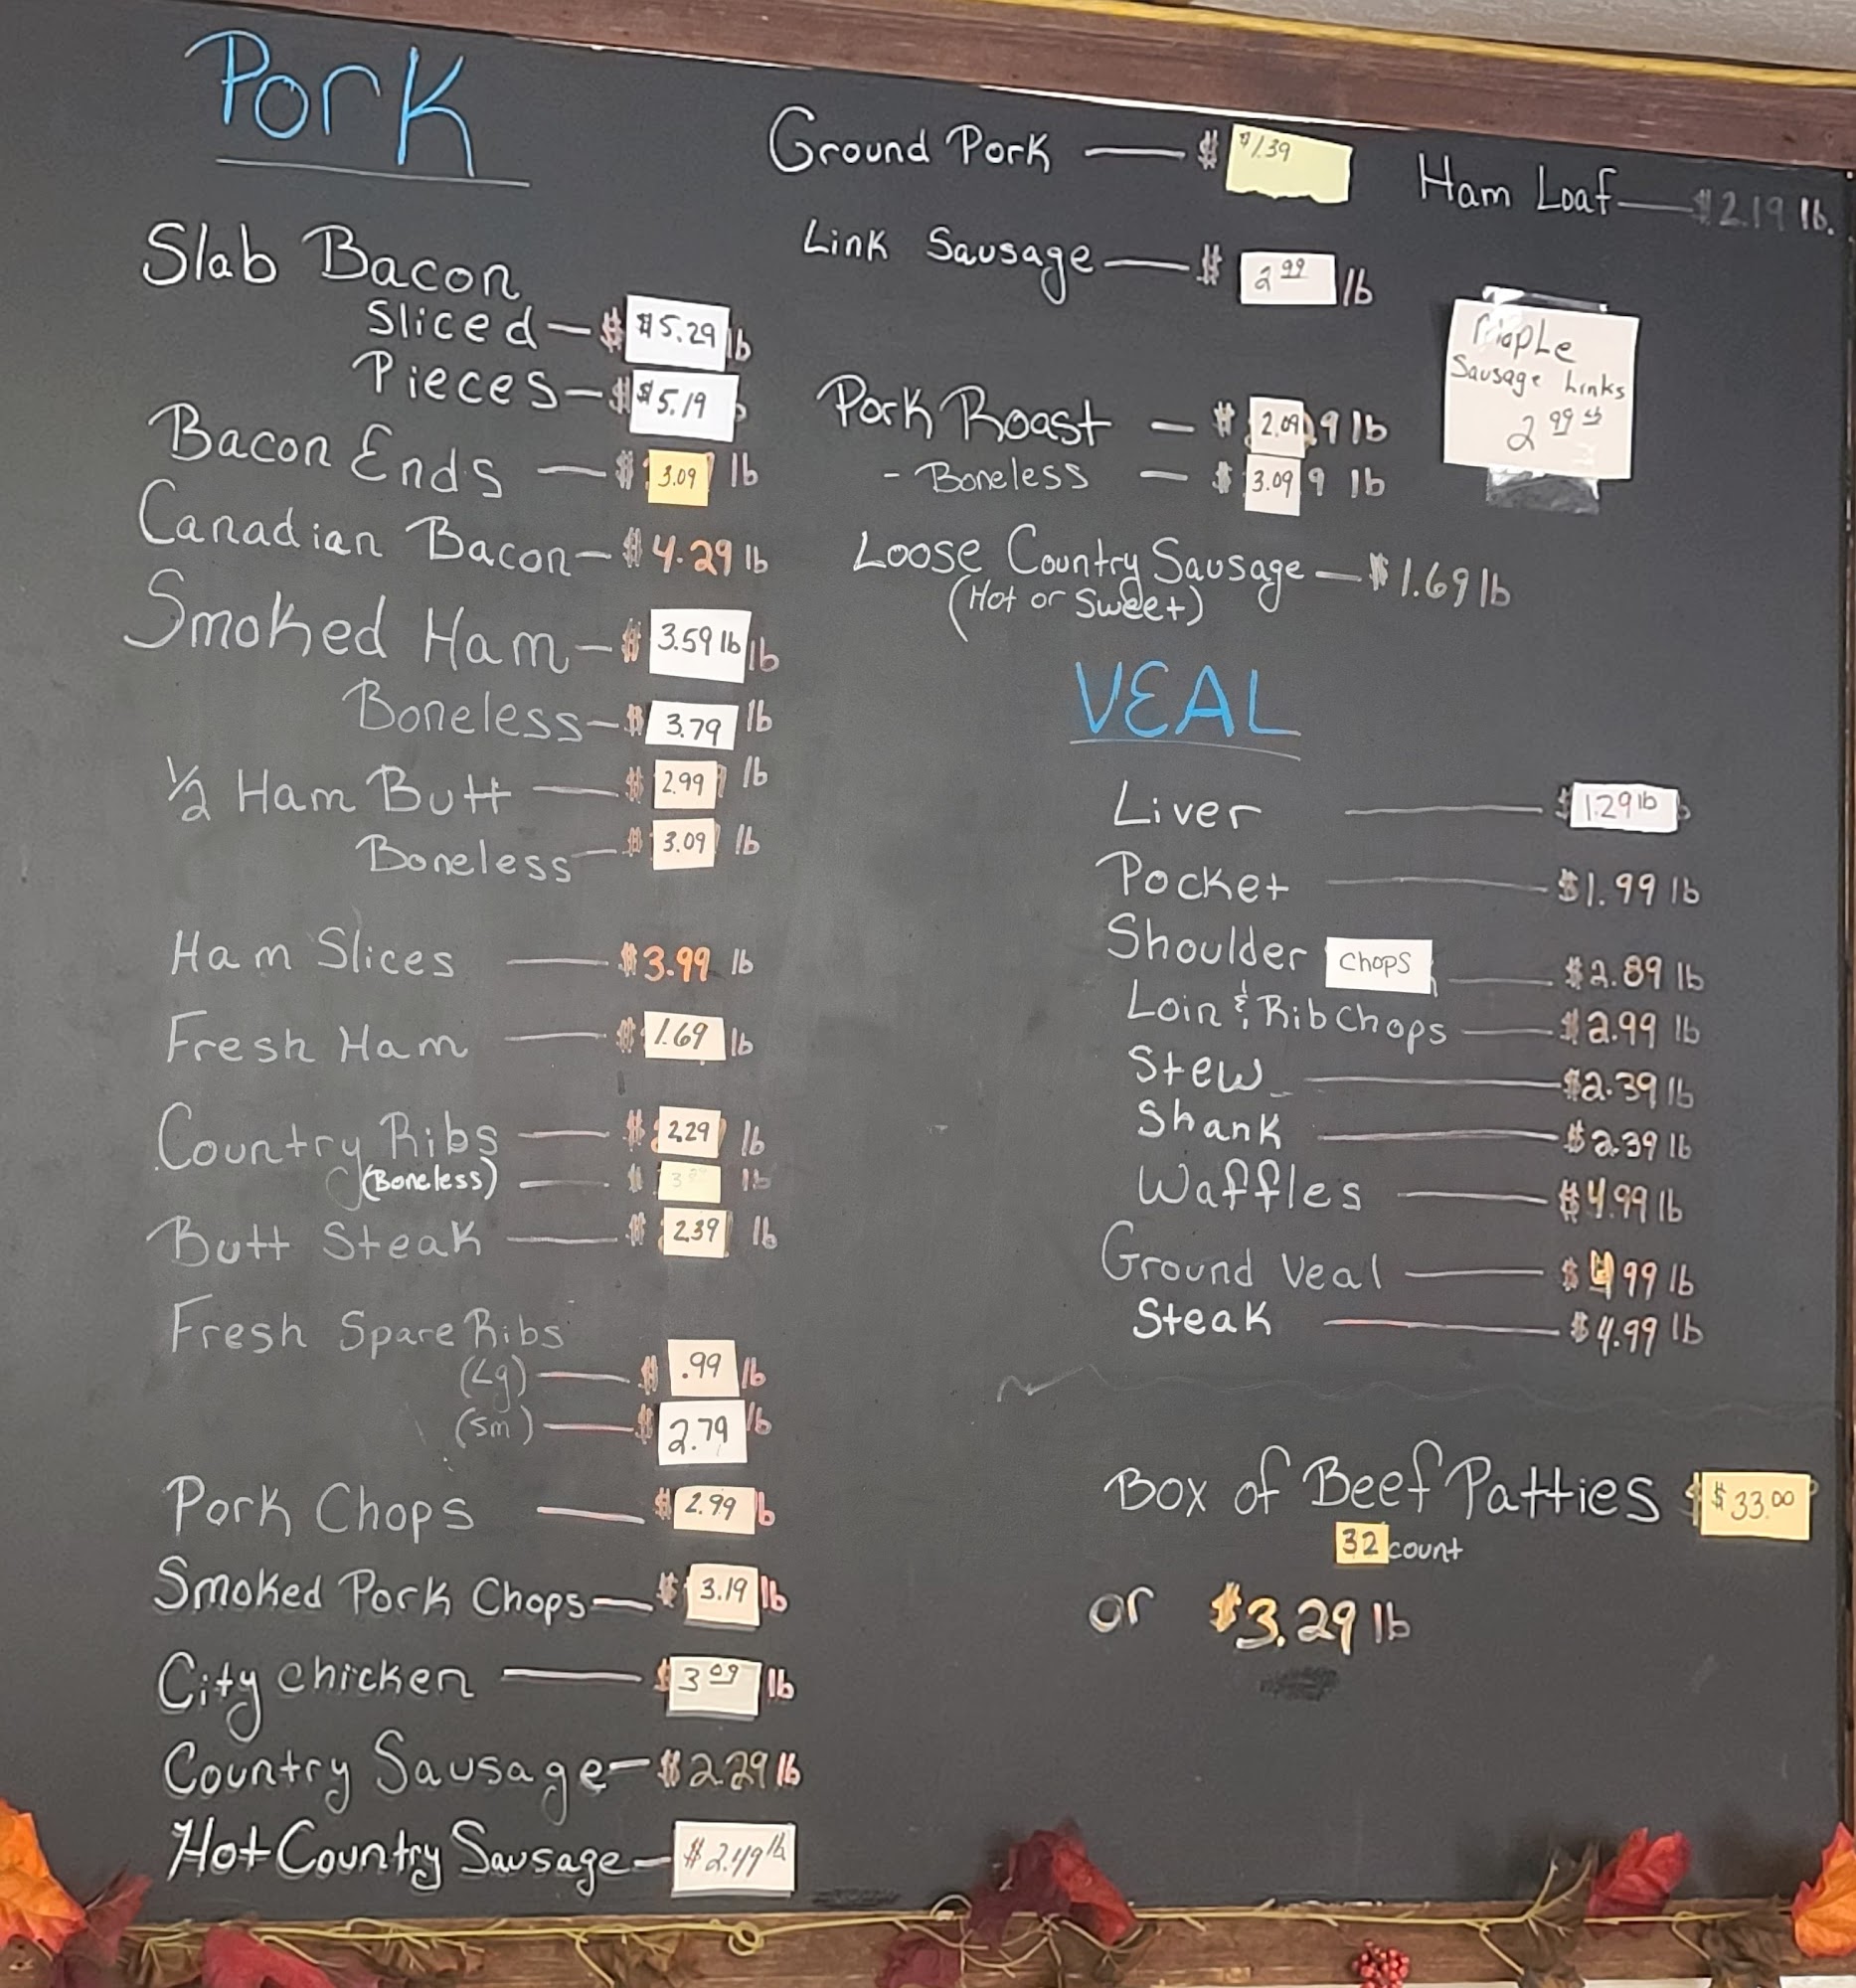 Pork
Slab Bacon
Sliced — $ $5.29 lb
Pieces — $ $5.19
Bacon Ends — $ 3.09 lb
Canadian Bacon — $4.29 lb
Smoked Ham — $ 3.59 lb lb
Boneless — $ 3.79 lb
1/2 Ham Butt — $ 2.99 lb
Boneless — $ 3.09 lb
Ham Slices — $3.99 lb
Fresh Ham — $ 1.69 lb
Country Ribs — $ 2.29 lb
(Boneless) — $ lb
Butt Steak — $ 2.39 lb
Fresh Spare Ribs
(Lg) — $ .99 lb
(sm) — $ 2.79 lb
Pork Chops — $ 2.99 lb
Smoked Pork Chops — $ 3.19 lb
City Chicken — $ 3 09 lb
Country Sausage — $2.29 lb
Hot Country Sausage — $2.49 lb
Ground Pork — $ $1.39
Ham Loaf — $2.19 lb.
Link Sausage — $ 2 99 lb
Maple
Sausage Links
2 99 lb
Pork Roast — $ 2.09 9 lb
- Boneless — $ 3.09 9 lb
Loose Country Sausage — $1.69 lb
(Hot or Sweet)
VEAL
Liver — $ 1.29 lb
Pocket — $1.99 lb
Shoulder Chops — $2.89 lb
Loin & Rib Chops — $2.99 lb
Stew — $2.39 lb
Shank — $2.39 lb
Waffles — $4.99 lb
Ground Veal — $4.99 lb
Steak — $4.99 lb
Box of Beef Patties $ $33.00
32 count
or $3.29 lb